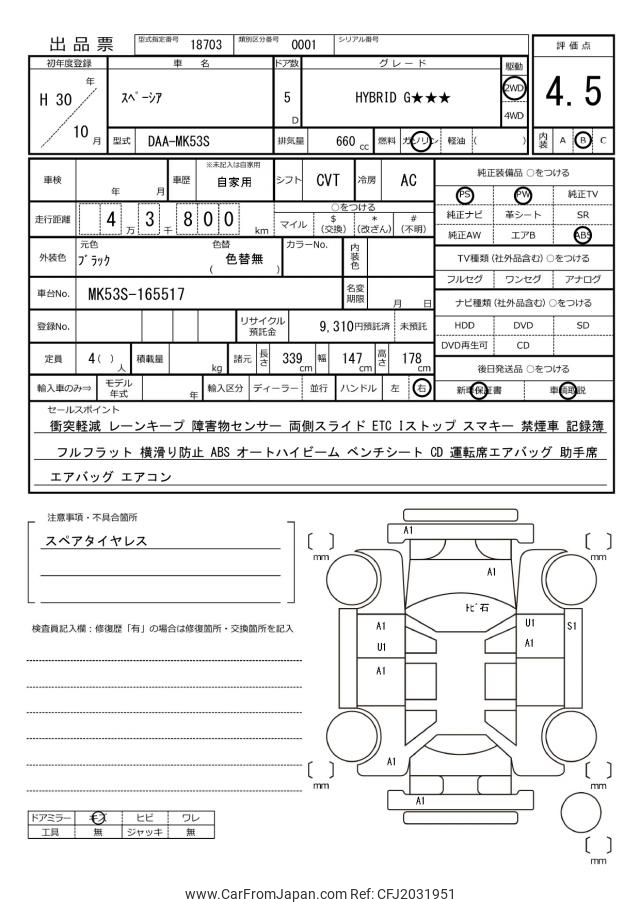 出品票 型式指定番号 18703 類別区分番号 0001 シリアル番号
評価点
4.5
内装 A B C
初年度登録 車名 ドア数 グレード 駆動
H 30 年 ｽﾍﾟｰｼｱ 5 D HYBRID G★★★ 2WD
4WD
10 月 型式 DAA-MK53S 排気量 660 cc 燃料 ガソリン 軽油 ( )
車検 年 月 車歴 ※未記入は自家用 自家用 シフト CVT 冷房 AC
純正装備品 ○をつける
PS PW 純正TV
純正ナビ 革シート SR
純正AW エアB ABS
走行距離 4 万 3 千 8 0 0 km
○をつける
マイル $ (交換) * (改ざん) # (不明)
外装色 元色 ﾌﾞﾗｯｸ 色替 ( 色替無 ) カラーNo. 内装色
TV種類 (社外品含む) ○をつける
フルセグ ワンセグ アナログ
車台No. MK53S-165517 名変期限 月 日
ナビ種類 (社外品含む) ○をつける
HDD DVD SD
DVD再生可 CD
登録No. リサイクル預託金 9,310円預託済 未預託
定員 4 ( ) 人 積載量 kg 諸元 長さ 339 cm 幅 147 cm 高さ 178 cm
後日発送品 ○をつける
新車保証書 車輌取説
輸入車のみ⇒ モデル年式 年 輸入区分 ディーラー 並行 ハンドル 左 右
セールスポイント
衝突軽減 レーンキープ 障害物センサー 両側スライド ETC Iストップ スマキー 禁煙車 記録簿
フルフラット 横滑り防止 ABS オートハイビーム ベンチシート CD 運転席エアバッグ 助手席
エアバッグ エアコン
注意事項・不具合箇所
スペアタイヤレス
検査員記入欄：修復歴「有」の場合は修復箇所・交換箇所を記入
ドアミラー キズ ヒビ ワレ
工具 無 ジャッキ 無
A1
mm
mm
A1
ﾄﾋﾞ石
A1
U1
S1
U1
A1
A1
A1
mm
mm
A1
mm
www.CarFromJapan.com Ref: CFJ2031951